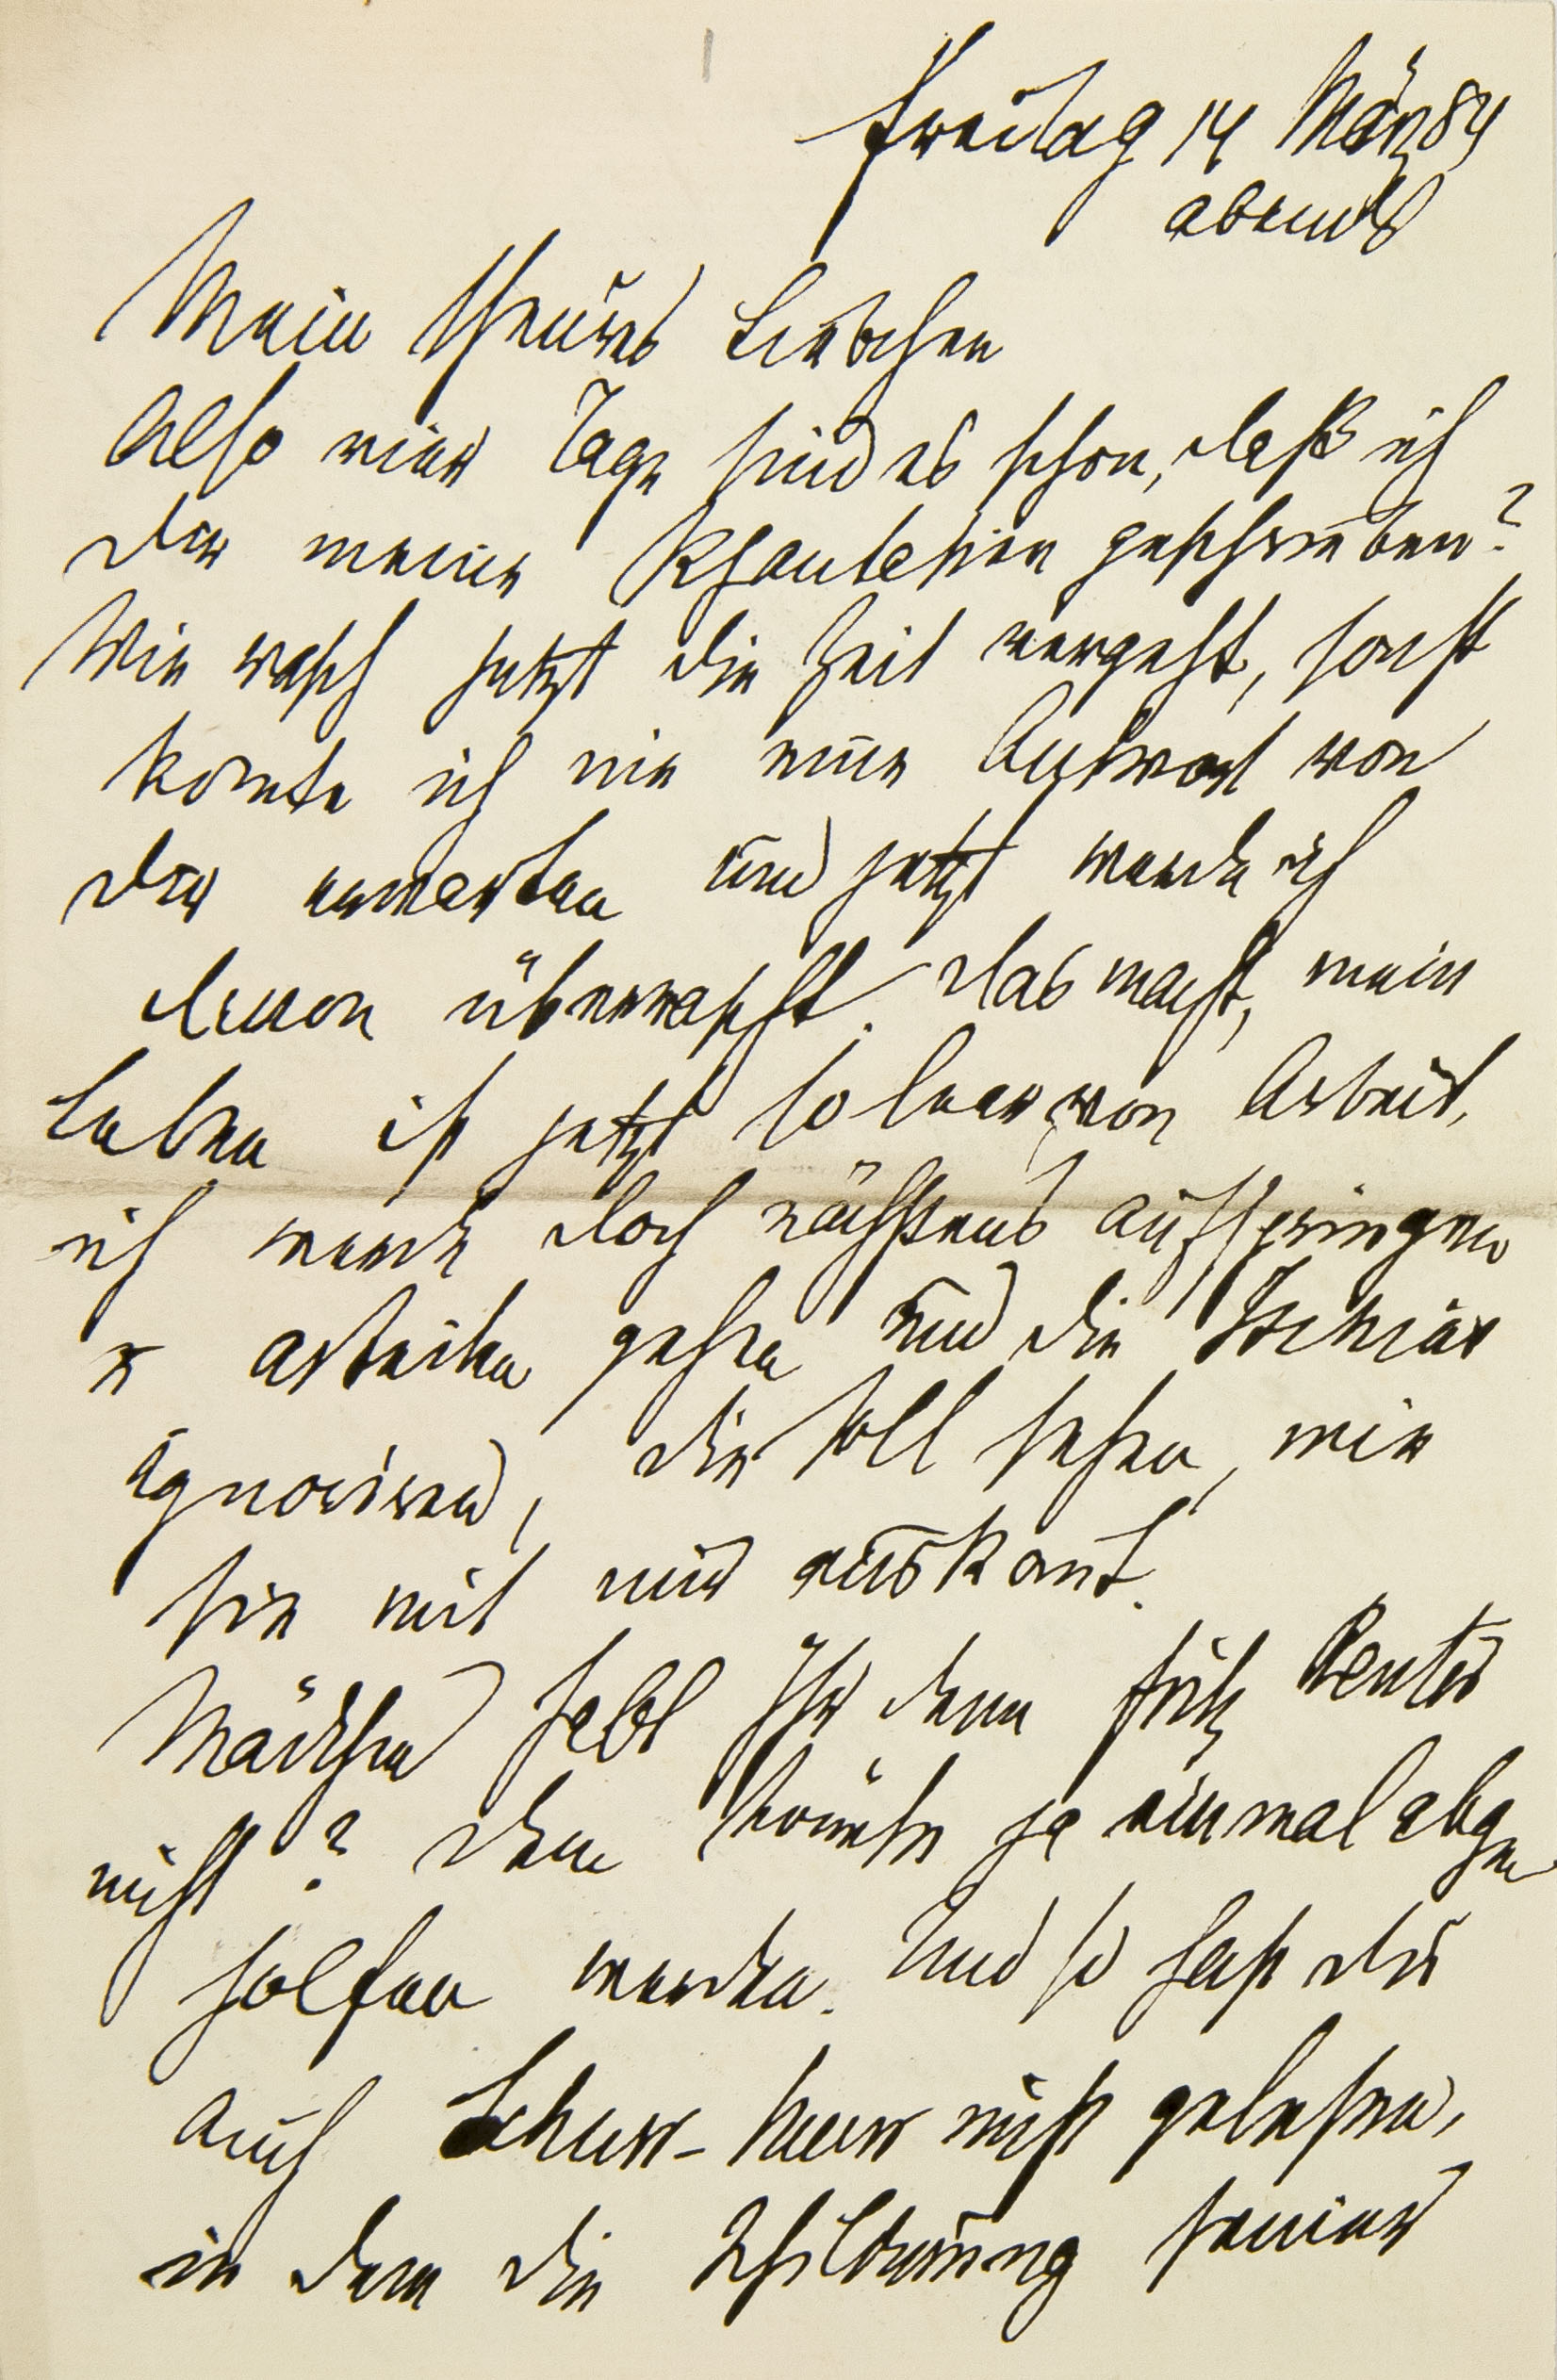 Freitag 14 März 84
abends
Mein theures Liebchen
Also vier Tage sind es schon, daß ich
Dir meine Phantasien geschrieben?
Wie rasch jetzt die Zeit vergeht, sonst
konnte ich nie eine Antwort von
Dir erwarten und jetzt werde ich
davon überrascht. Das macht, mein
Leben ist jetzt so leer von Arbeit,
ich werde doch nächstens aufspringen
x arbeiten gehen und die Ischias
ignoriren, die soll sehen, wie
sie mit mir auskomt.
Mädchen habt Ihr denn Fritz Reuter
nicht? Dem könnte ja einmal abge
holfen werden. Und so hast Du
auch Schurr-Murr nicht gelesen,
in dem die Schilderung seiner